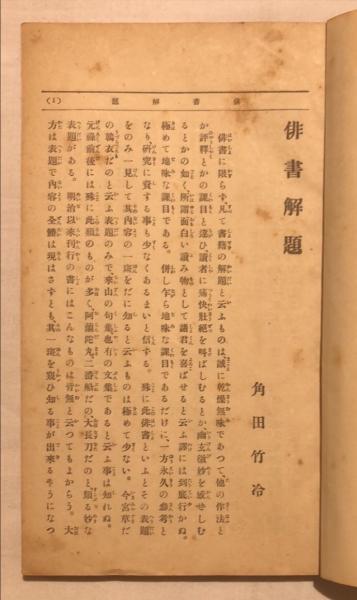 俳書解題
(1)
俳書解題
角田竹冷
俳書に限らず、凡て書籍の解題と云ふものは誠に乾燥無味であつて、他の作法と
か評釋とかの課目と違ひ、讀者に痛快壯絶を叫ばしむるとか、幽玄微妙を感せしむ
るとかの如く、所謂面白い讀み物として諸君を喜ばせると云ふ譯には到底行かぬ。
極めて地味な課目である。併し乍ら地味な課目であるだけに、一方永久の參考と
なり研究に資する事も少なくあるまいと信する。殊に此俳書といふとその表題
をのみ一見して其內容の一斑をだに知ると云ふものは極めて少ない。今宮草だ
の鶉衣だのと云ふ表題のみで、來山の句集也有の文集であると云ふ事は知れぬ。
元祿前後には殊に此類のものが多く、阿蘭陀丸二番船だの、大長刀だのと、頗る妙な
表題がある。明治以來刊行の書にはこんなものは皆無と云つてもよからう。大
方は表題で內容の全體は現はさずとも、其一斑を窺ひ知る事が出來るさうになつ